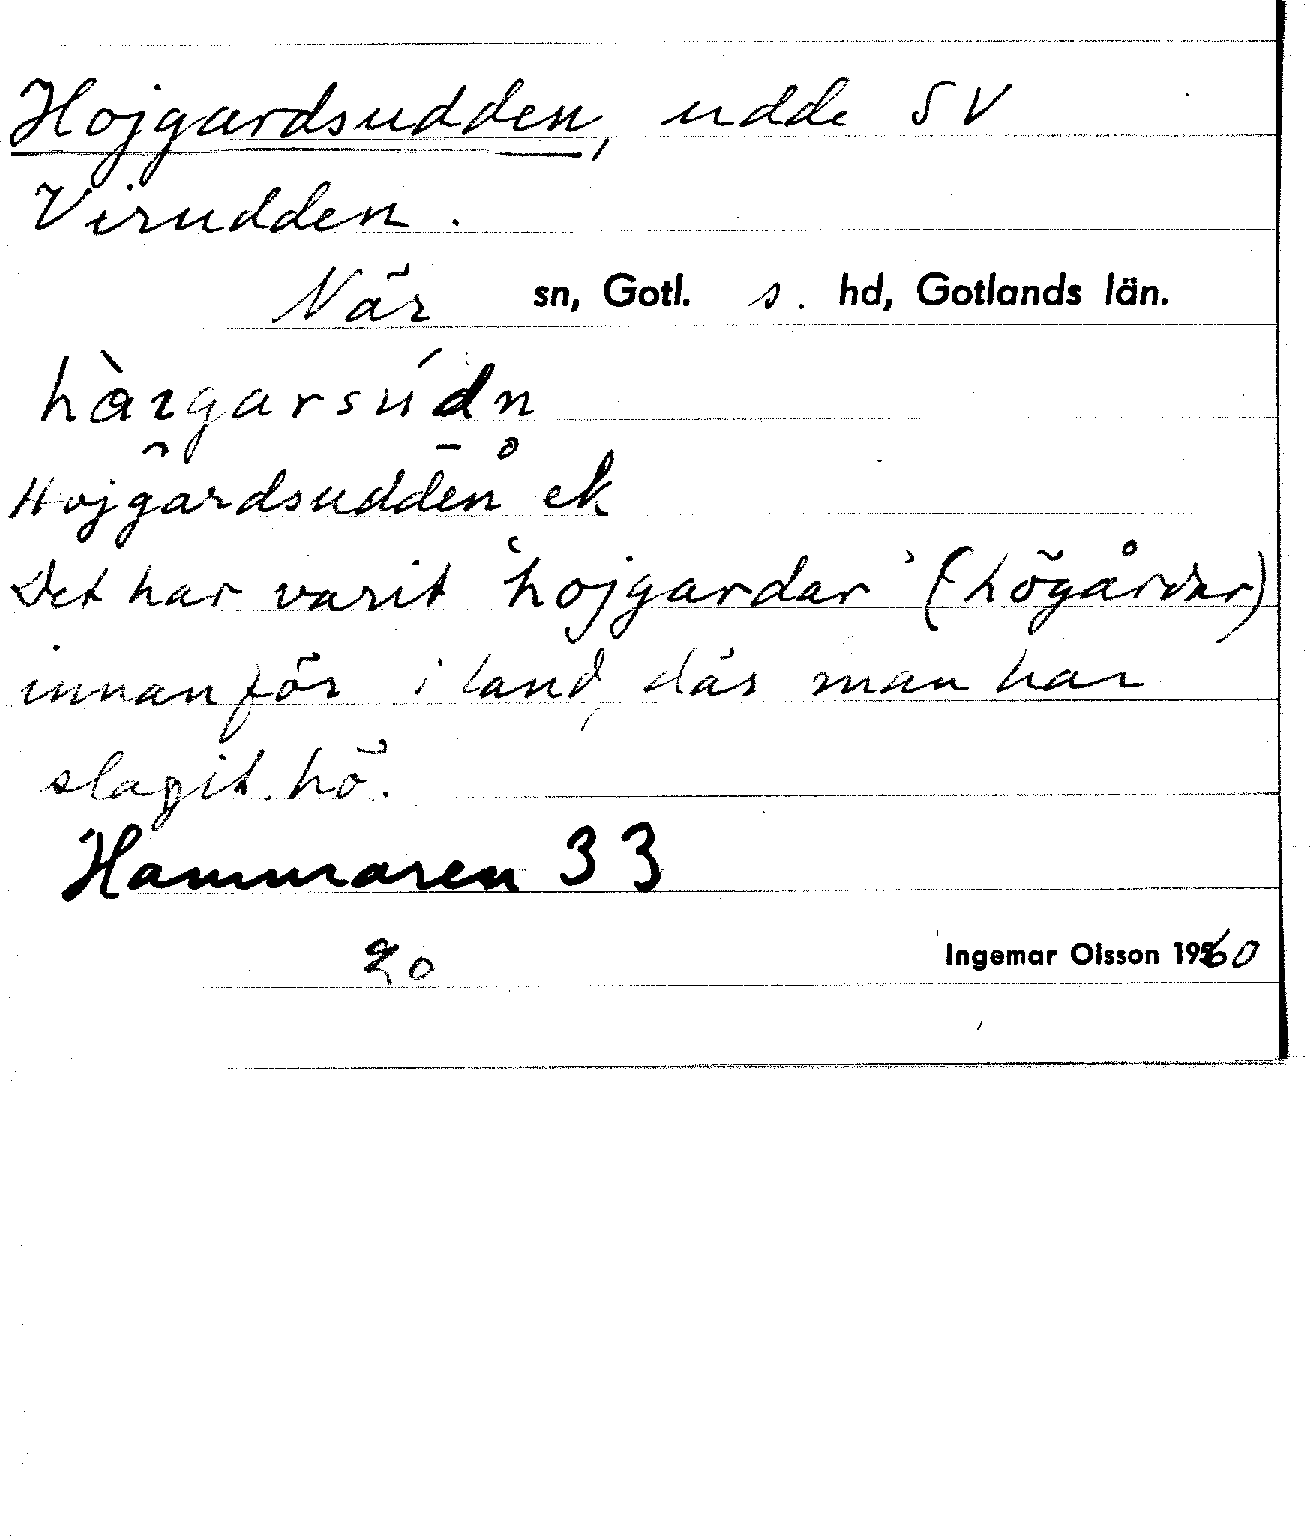 Hojgardsudden, udde SV
Virudden.
När sn, Gotl. s. hd, Gotlands län.
hàıgarsú́dn
Hojgårdsudden ek
Det har varit 'hojgardar' (högårdar)
innanför i land, där man har
slagit hö.
Hammaren 33
20 Ingemar Olsson 1960